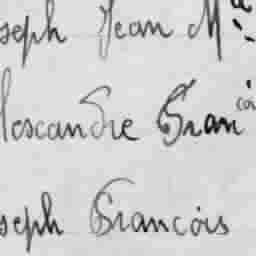 seph Jean Ma
lescandre Francois
seph Francois